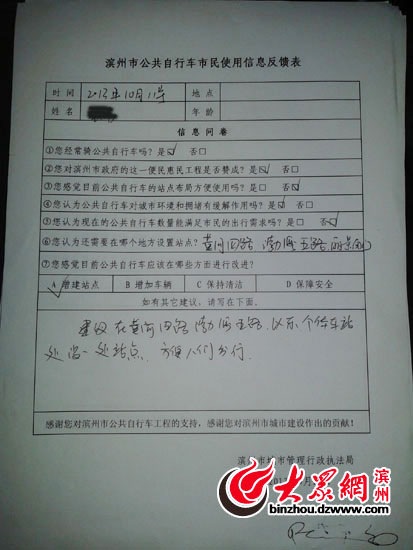 滨州市公共自行车市民使用信息反馈表
时间 2013年10月11号 地点
姓名 年龄
信息问卷
①您经常骑公共自行车吗？是☑ 否□
②您对滨州市政府的这一便民惠民工程是否赞成？是☑ 否□
③您感觉目前公共自行车的站点布局方便使用吗？是☑ 否□
④您认为公共自行车对城市环境和拥堵有缓解作用吗？是☑ 否□
⑤您认为现在的公共自行车数量能满足市民的出行需求吗？是☑ 否□
⑥您认为还需要在哪个地方设置站点？黄河四路 渤海五路
⑦您感觉目前公共自行车应该在哪些方面进行改进？
A 增建站点 B 增加车辆 C 保持清洁 D 保障安全
如有其它建议，请写在下面。
建议在黄河四路渤海五路 以东个停车站
处设一处站点，方便人们出行.
感谢您对滨州市公共自行车工程的支持，感谢您对滨州市城市建设作出的贡献！
滨州市城市管理行政执法局
大众网 滨州
binzhou.dzwww.com